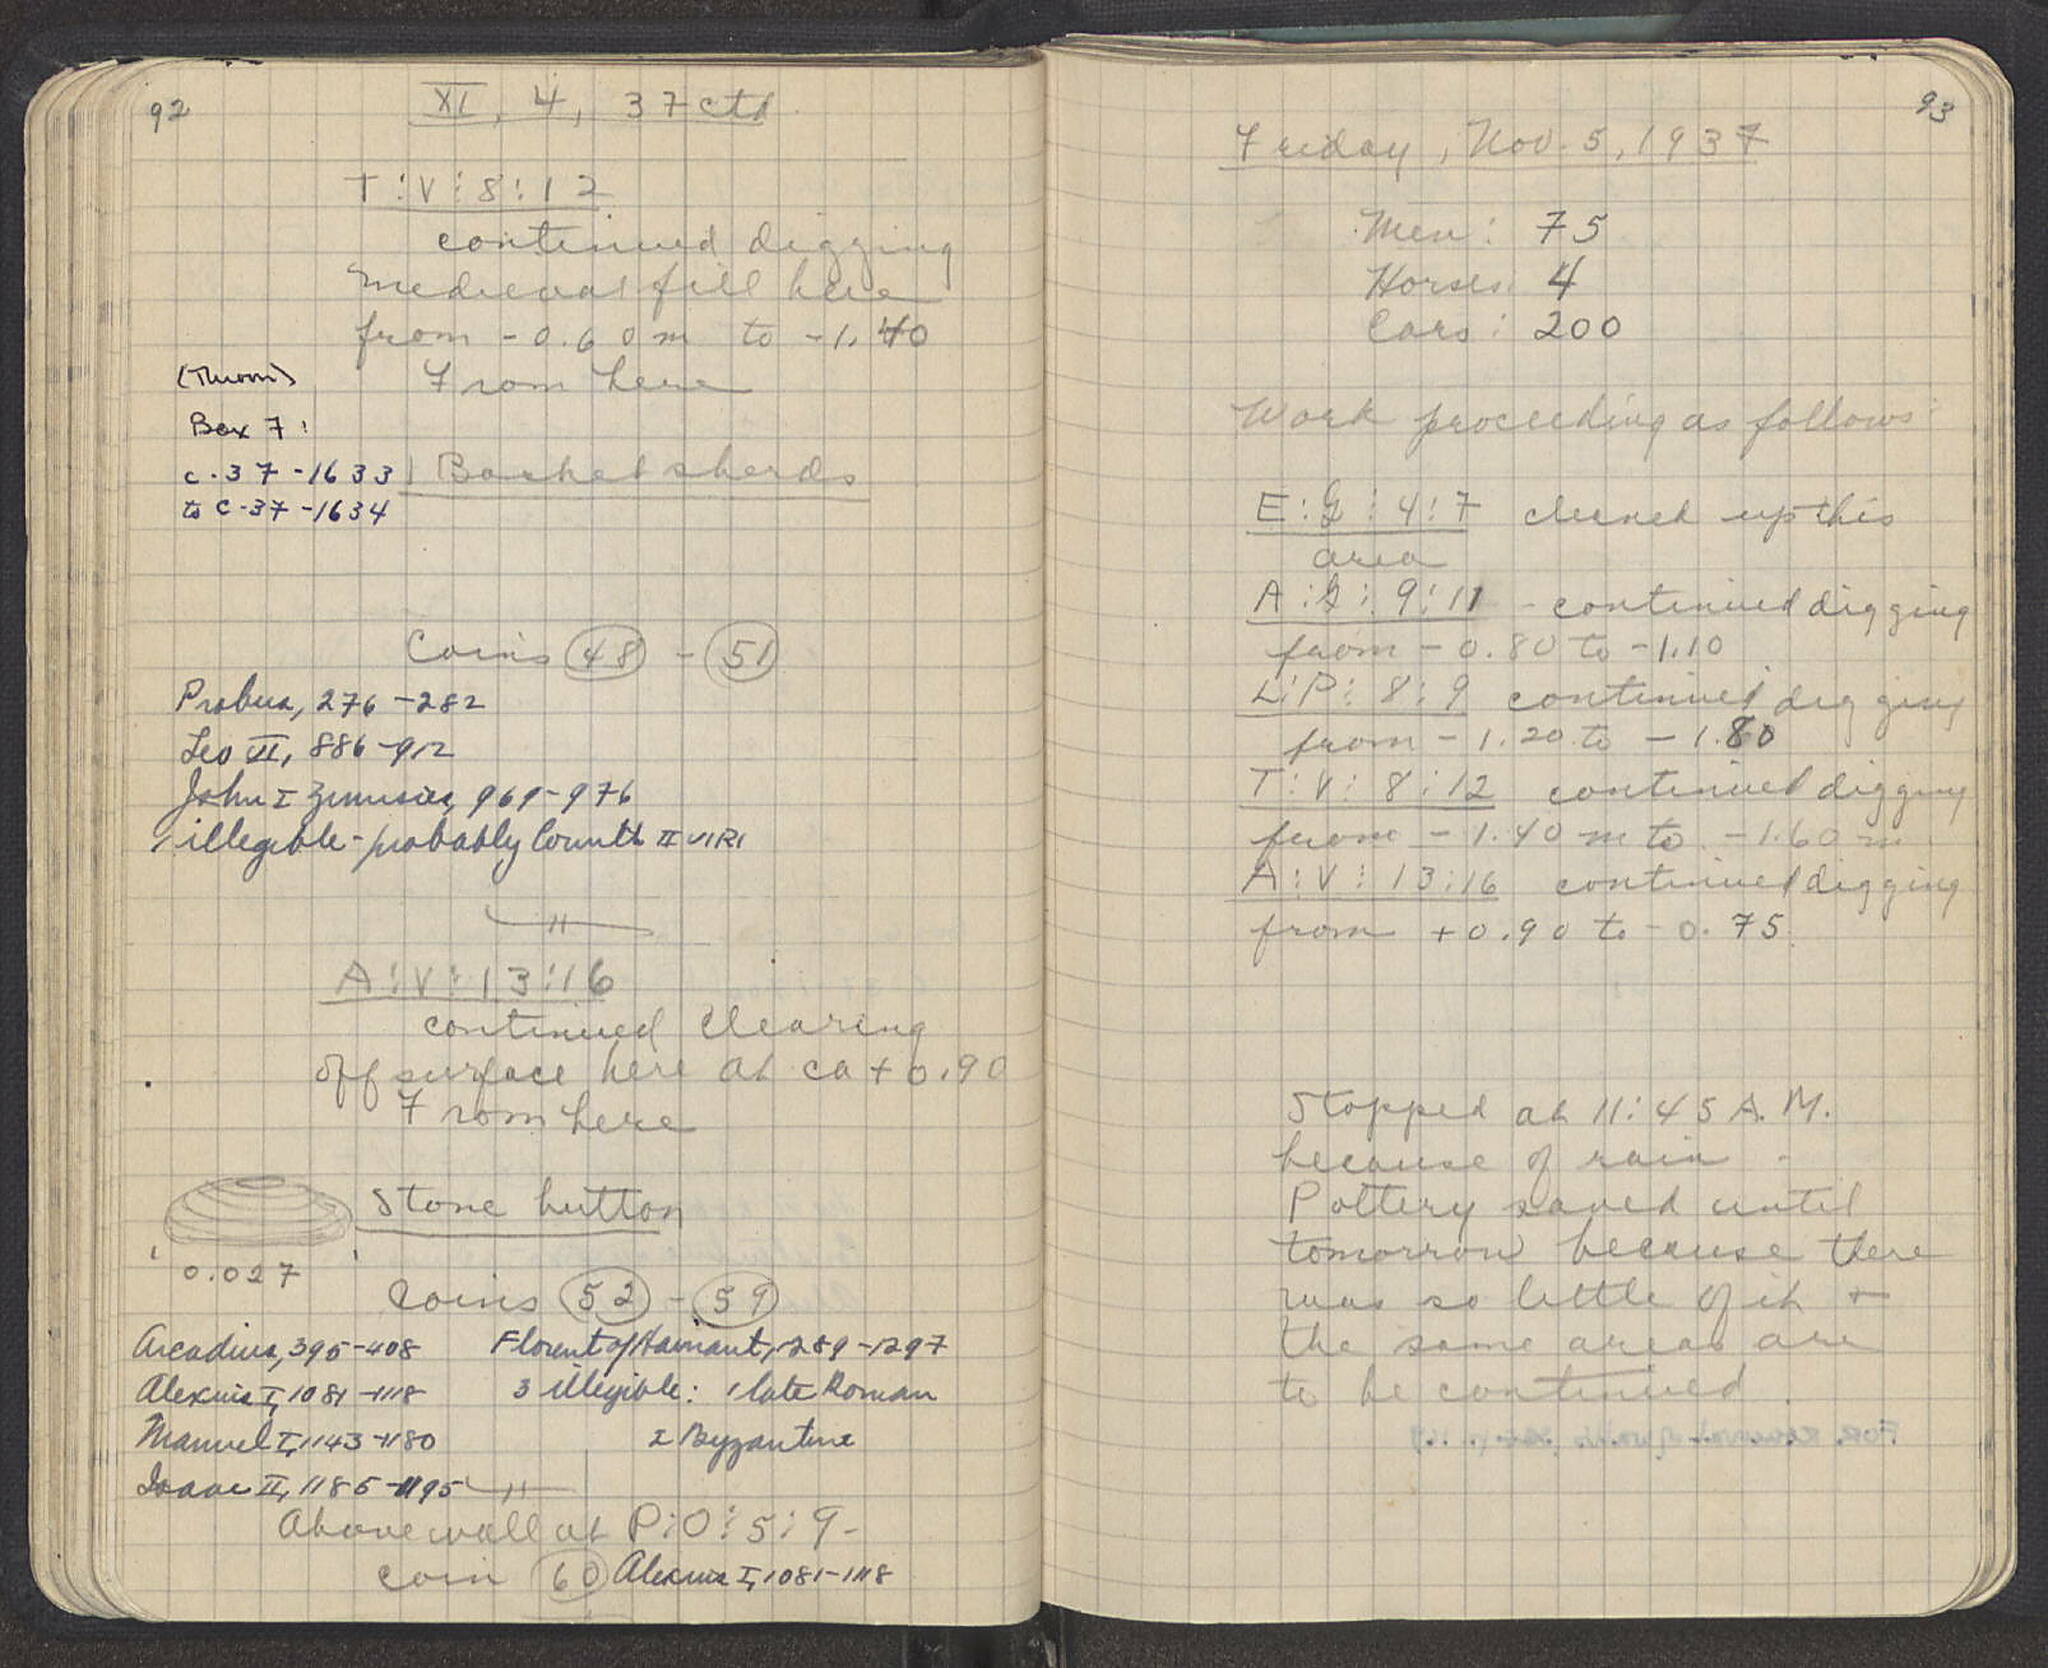 92
XI, 4, 37 ctd
T:V:8:12
continued digging
medieval fill here
from -0.60 m to -1.40
From here
Box 7:
c.37-1633
to C-37-1634
1 Basket sherds
Coins 48 - 51
Probus, 276-282
Leo VI, 886-912
John I Zimisces, 969-976
1 illegible - probably Corinth II VIRI
A:V:13:16
continued clearing
off surface here at ca +0.90
From here
Stone button
0.027
Coins 52 - 59
Arcadius, 395-408
Alexius I, 1081-1118
Manuel I, 1143-1180
Isaac II, 1185-1195
Florent of Hainaut, 1289-1297
3 illegible: 1 late Roman
2 Byzantine
Above wall at P:O:5:9-
coin 60 Alexius I, 1081-1118
93
Friday, Nov. 5, 1937
Men: 75
Horses: 4
Cars: 200
Work proceeding as follows:
E:G:4:7 cleaned up this
area
A:G:9:11 - continued digging
from -0.80 to -1.10
L:P:8:9 continued digging
from -1.20 to -1.80
T:V:8:12 continued digging
from -1.40 m to -1.60 m
A:V:13:16 continued digging
from +0.90 to -0.75.
Stopped at 11:45 A.M.
because of rain -
Pottery saved until
tomorrow because there
was so little of it +
the same areas are
to be continued.